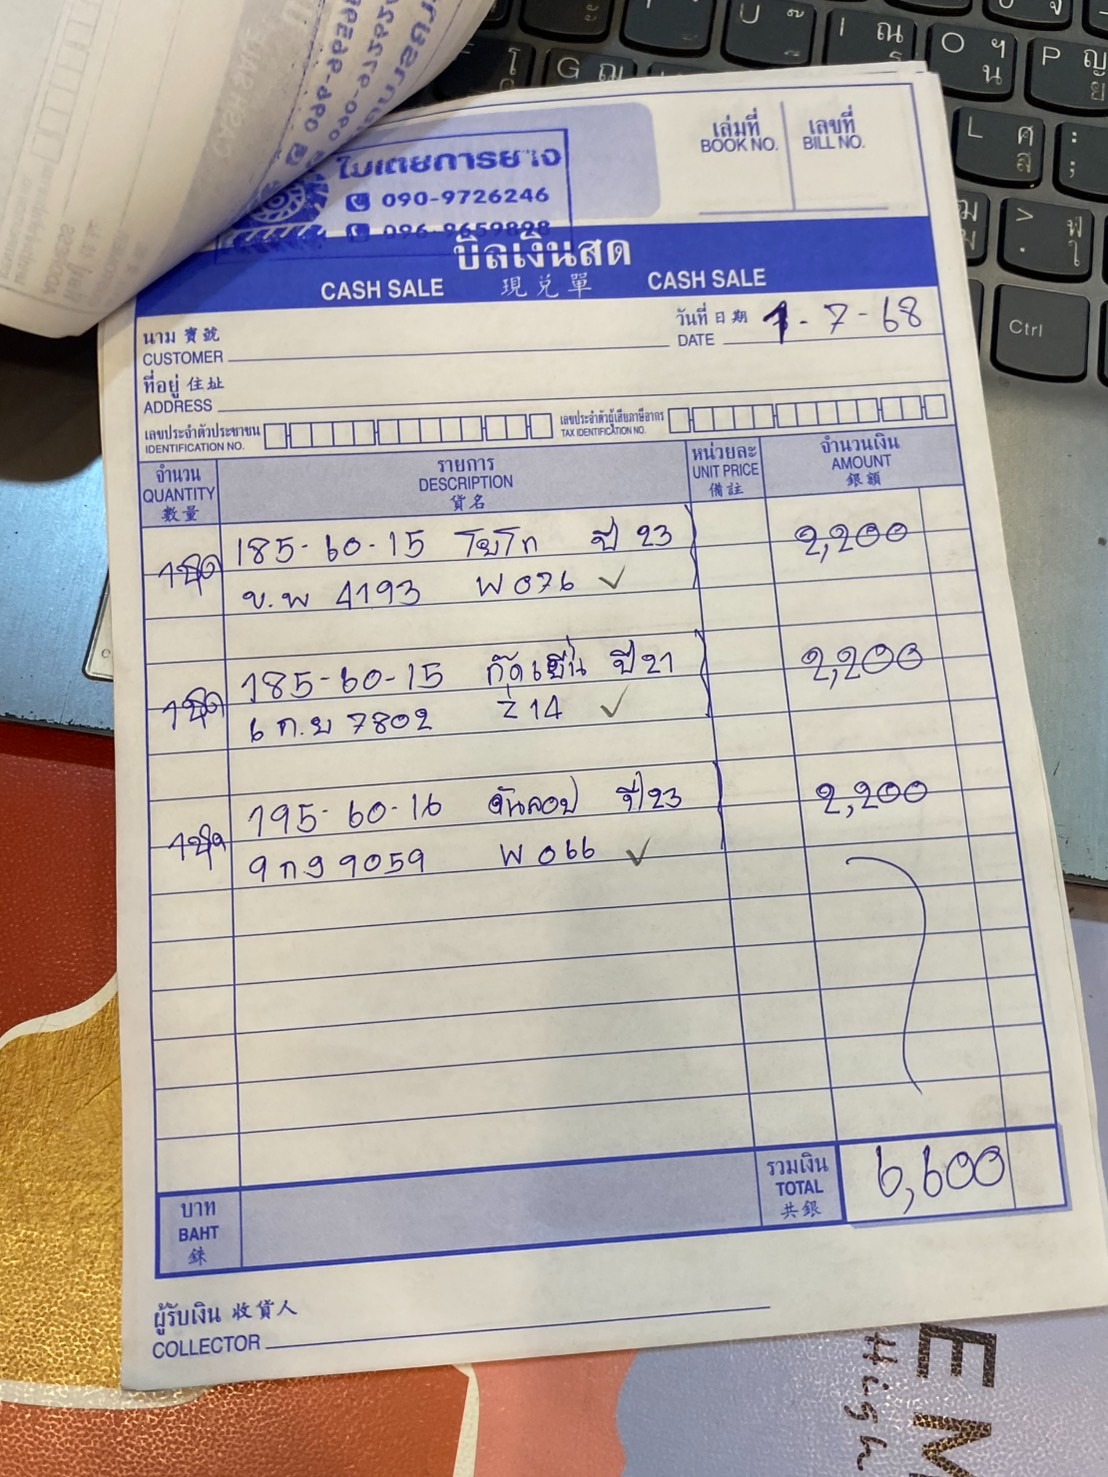 ใบเตยการยาง
090-9726246
096-9659898
เล่มที่ เลขที่
BOOK NO. BILL NO.
บิลเงินสด
CASH SALE 現兌單 CASH SALE
นาม 寶號
CUSTOMER
วันที่ 日期 1-7-68
DATE
ที่อยู่ 住址
ADDRESS
เลขประจำตัวประชาชน
IDENTIFICATION NO.
เลขประจำตัวผู้เสียภาษีอากร
TAX IDENTIFICATION NO.
จำนวน รายการ หน่วยละ จำนวนเงิน
QUANTITY DESCRIPTION UNIT PRICE AMOUNT
數量 貨名 備註 銀額
1ชุด 185-60-15 โยโก ปี 23 2,200
ข.พ 4193 W 076 ✓
1ชุด 185-60-15 กู๊ดเยียน ปี 21 2,200
6 ก.ย 7802 Z 14 ✓
1ชุด 195-60-16 ดันลอป ปี 23 2,200
9 กว 9059 W 066 ✓
บาท
BAHT
銖
รวมเงิน
TOTAL
共銀
6,600
ผู้รับเงิน 收貨人
COLLECTOR
U
I ณ
ร
O ฯ
น
P ญ
ย
G
L ศ
ส
Ctrl
EM
High